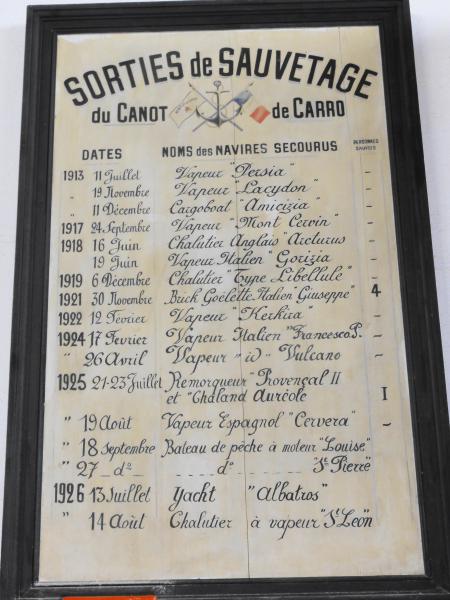 SORTIES de SAUVETAGE
du CANOT de CARRO
DATES NOMS des NAVIRES SECOURUS PERSONNES SAUVÉES
1913 11 Juillet Vapeur "Persia" -
" 19 Novembre Vapeur "Lacydon" -
" 11 Décembre Cargoboat "Amicizia" -
1917 24 Septembre Vapeur "Mont Cervin" -
1918 16 Juin Chalutier Anglais "Arcturus -
19 Juin Vapeur Italien "Gorizia -
1919 6 Décembre Chalutier "Type Libellule" -
1921 30 Novembre Brick Goëlette Italien "Giuseppe" 4
1922 12 Février Vapeur "Kerkira" -
1924 17 Février Vapeur Italien "Francesco P. -
" 26 Avril Vapeur "id" Vulcano -
1925 21-23 Juillet Remorqueur "Provençal II
et "Chaland Auréole 1
" 19 Août Vapeur Espagnol "Cervera" -
" 18 Septembre Bateau de pêche à moteur "Louise"
" 27 _ dº _ _ _ _ dº _ _ _ _ "St Pierre"
1926 13 Juillet Yacht "Albatros"
" 14 Août Chalutier à vapeur "St Léon"